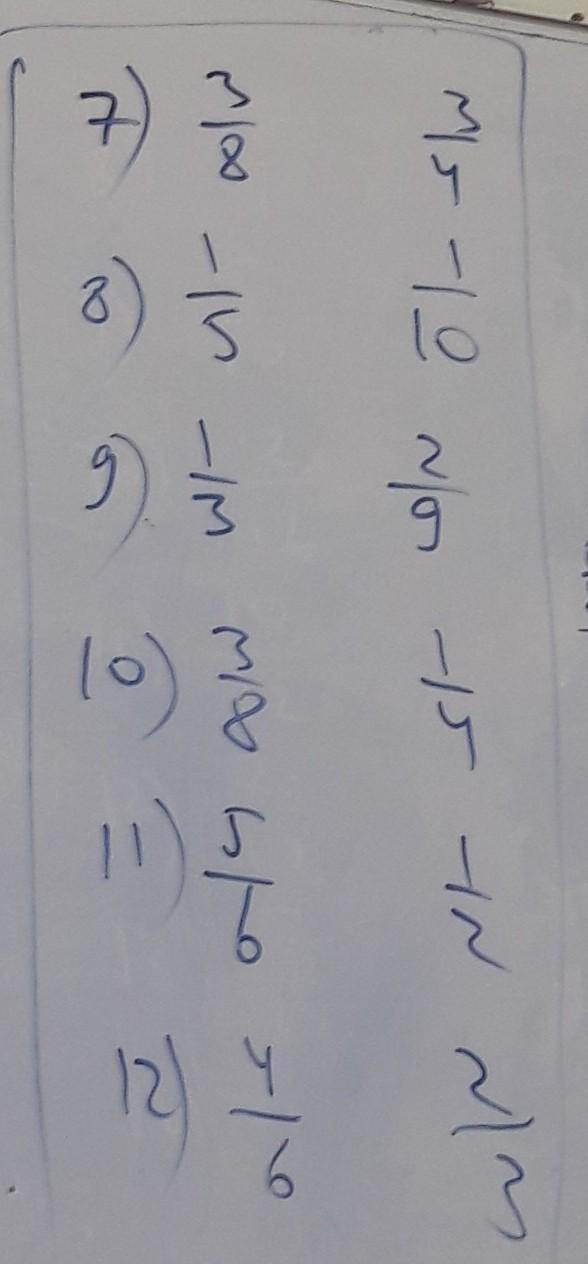 7) 3/8 3/4
8) 1/5 1/10
9) 1/3 2/9
10) 3/8 1/4
11) 5/6 1/2
12) 4/6 2/3